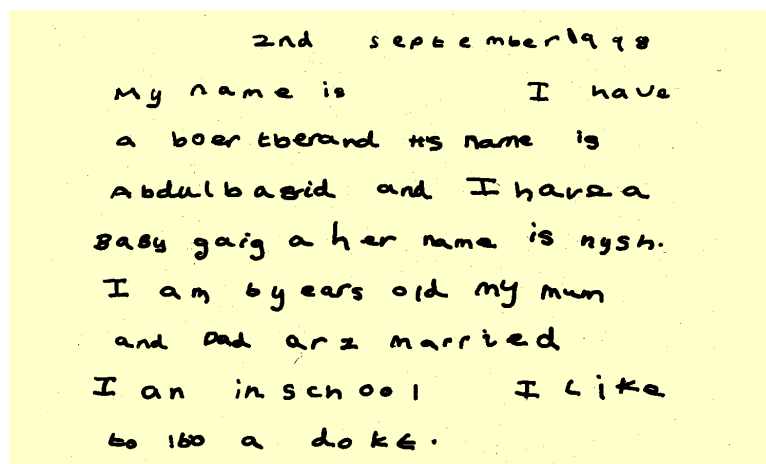 2nd september 1998
My name is I have
a boer tberand His name is
Abdulbasid and I have a
BaBy gaig a her name is nysh.
I am 6 years old my mum
and Dad are married
I an in school I Like
to a doke.